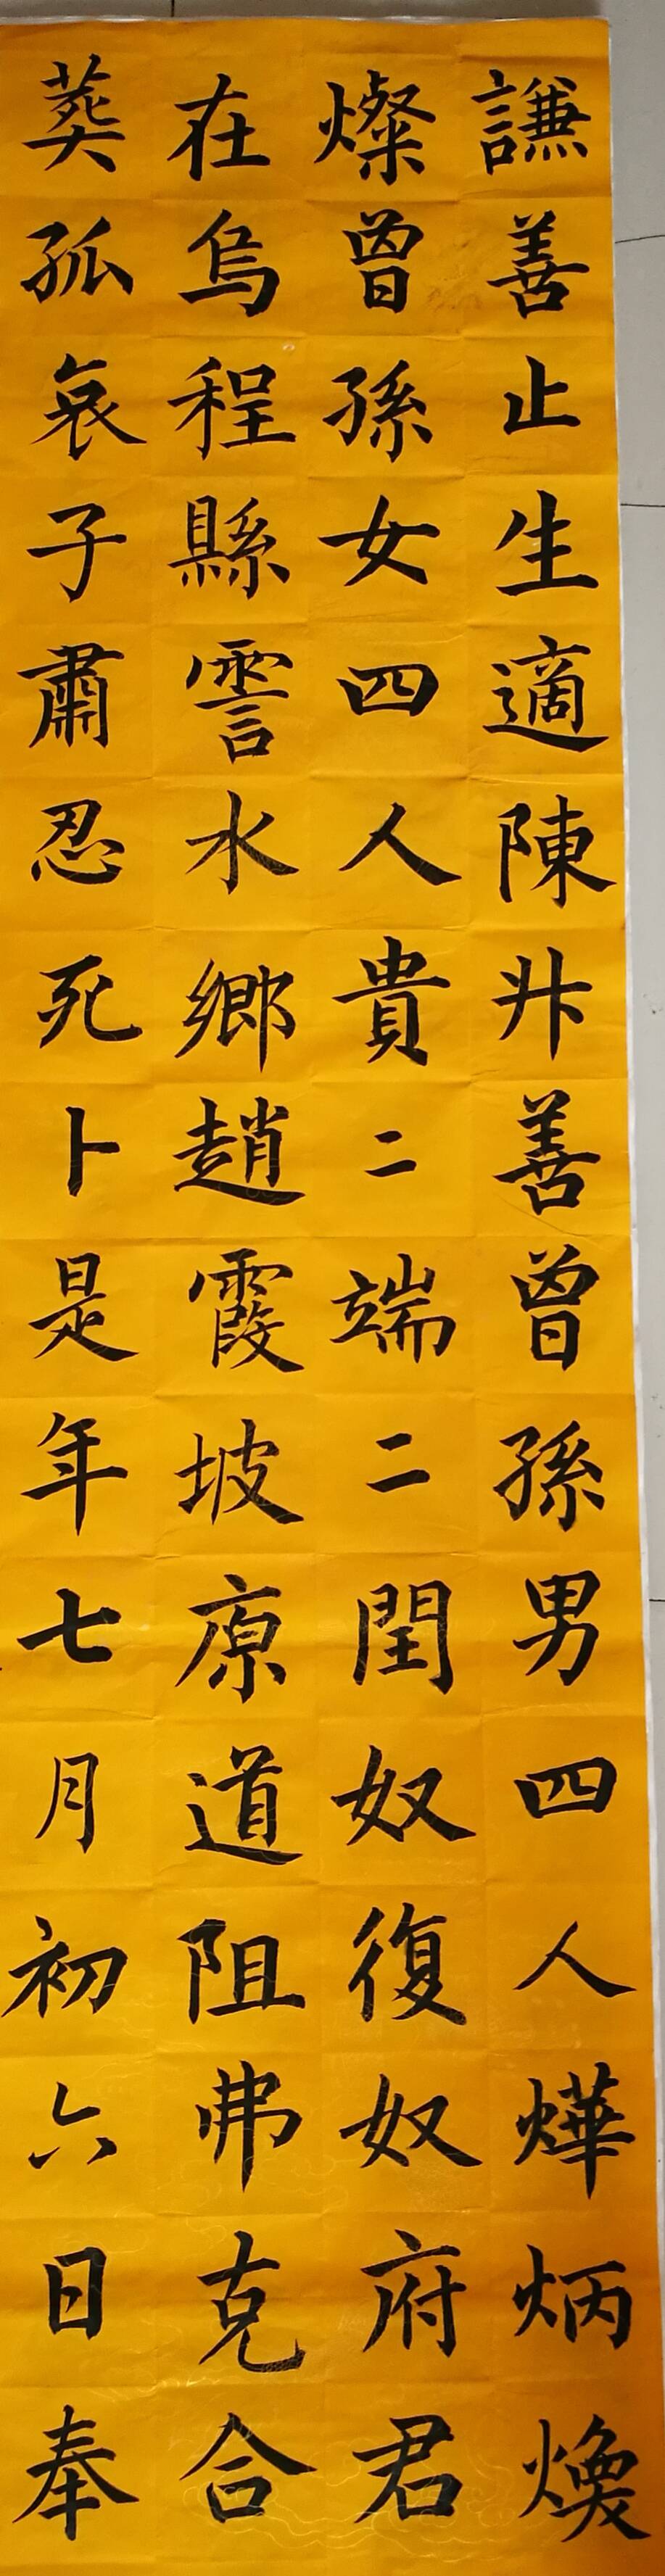 謙善止生適陳廾善曾孫男四人燁炳煥
燦曾孫女四人貴二端二閏奴復奴府君
在烏程縣霅水鄉趙霞坡原道阻弗克合
葬孤哀子肅忍死卜是年七月初六日奉